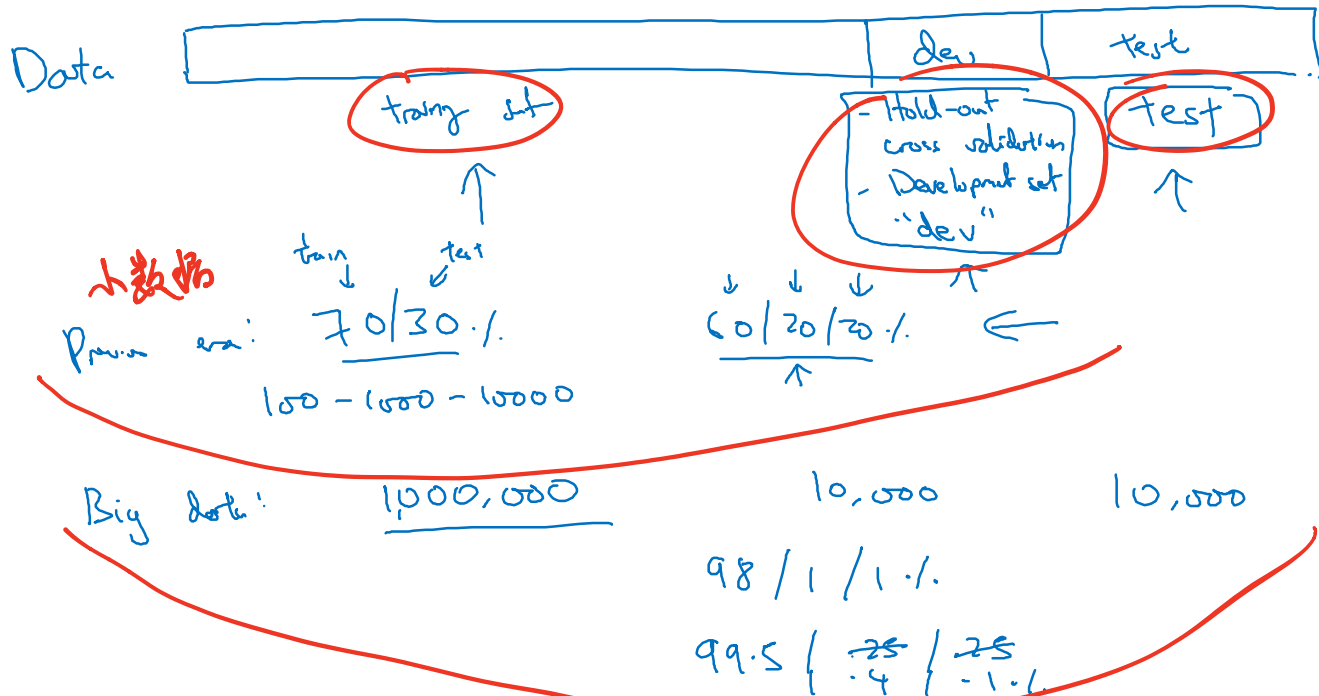 Data
dev
test
training set
- Hold-out
cross validation
- Development set
"dev"
test
train
test
小数据
Previous era:
70/30%
60/20/20%
100-1000-10000
Big data:
1,000,000
10,000
10,000
98/1/1%
99.5/.25/.25
.4/.1%